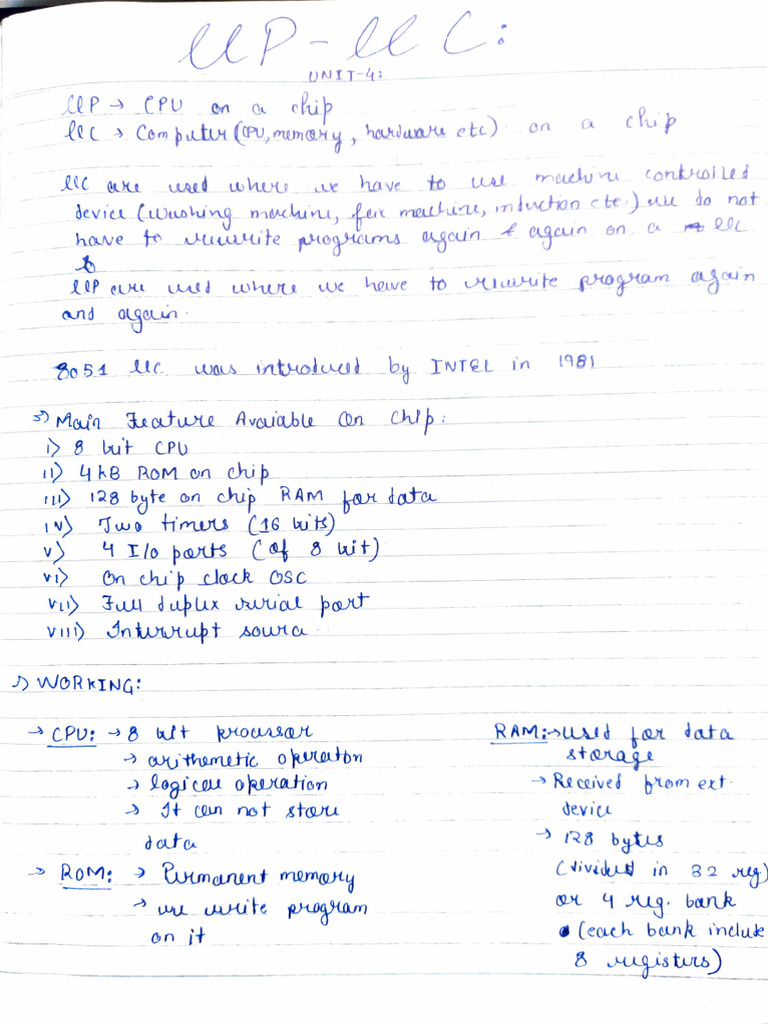 μP - μC:
UNIT-4:
μP → CPU on a chip
μC → Computer (CPU, memory, hardware etc) on a chip
μC are used where we have to use machine controlled
device (washing machine, fax machine, induction etc.) we do not
have to rewrite programs again & again on a μC
μP are used where we have to rewrite program again
and again.
8051 μC was introduced by INTEL in 1981
Main Feature Avaiable On Chip:
i) 8 bit CPU
ii) 4kB ROM on chip
iii) 128 byte on chip RAM for data
iv) Two timers (16 bits)
v) 4 I/o ports (of 8 bit)
vi) On chip clock OSC
vii) Full duplex serial port
viii) Interrupt source
WORKING:
→ CPU: → 8 bit processor
→ arithemetic operation
→ logical operation
→ It can not store
data
→ ROM: → Permanent memory
→ we write program
on it
RAM: → used for data
storage
→ Received from ext.
device
→ 128 bytes
(divided in 32 reg)
or 4 reg. bank
(each bank include
8 registers)